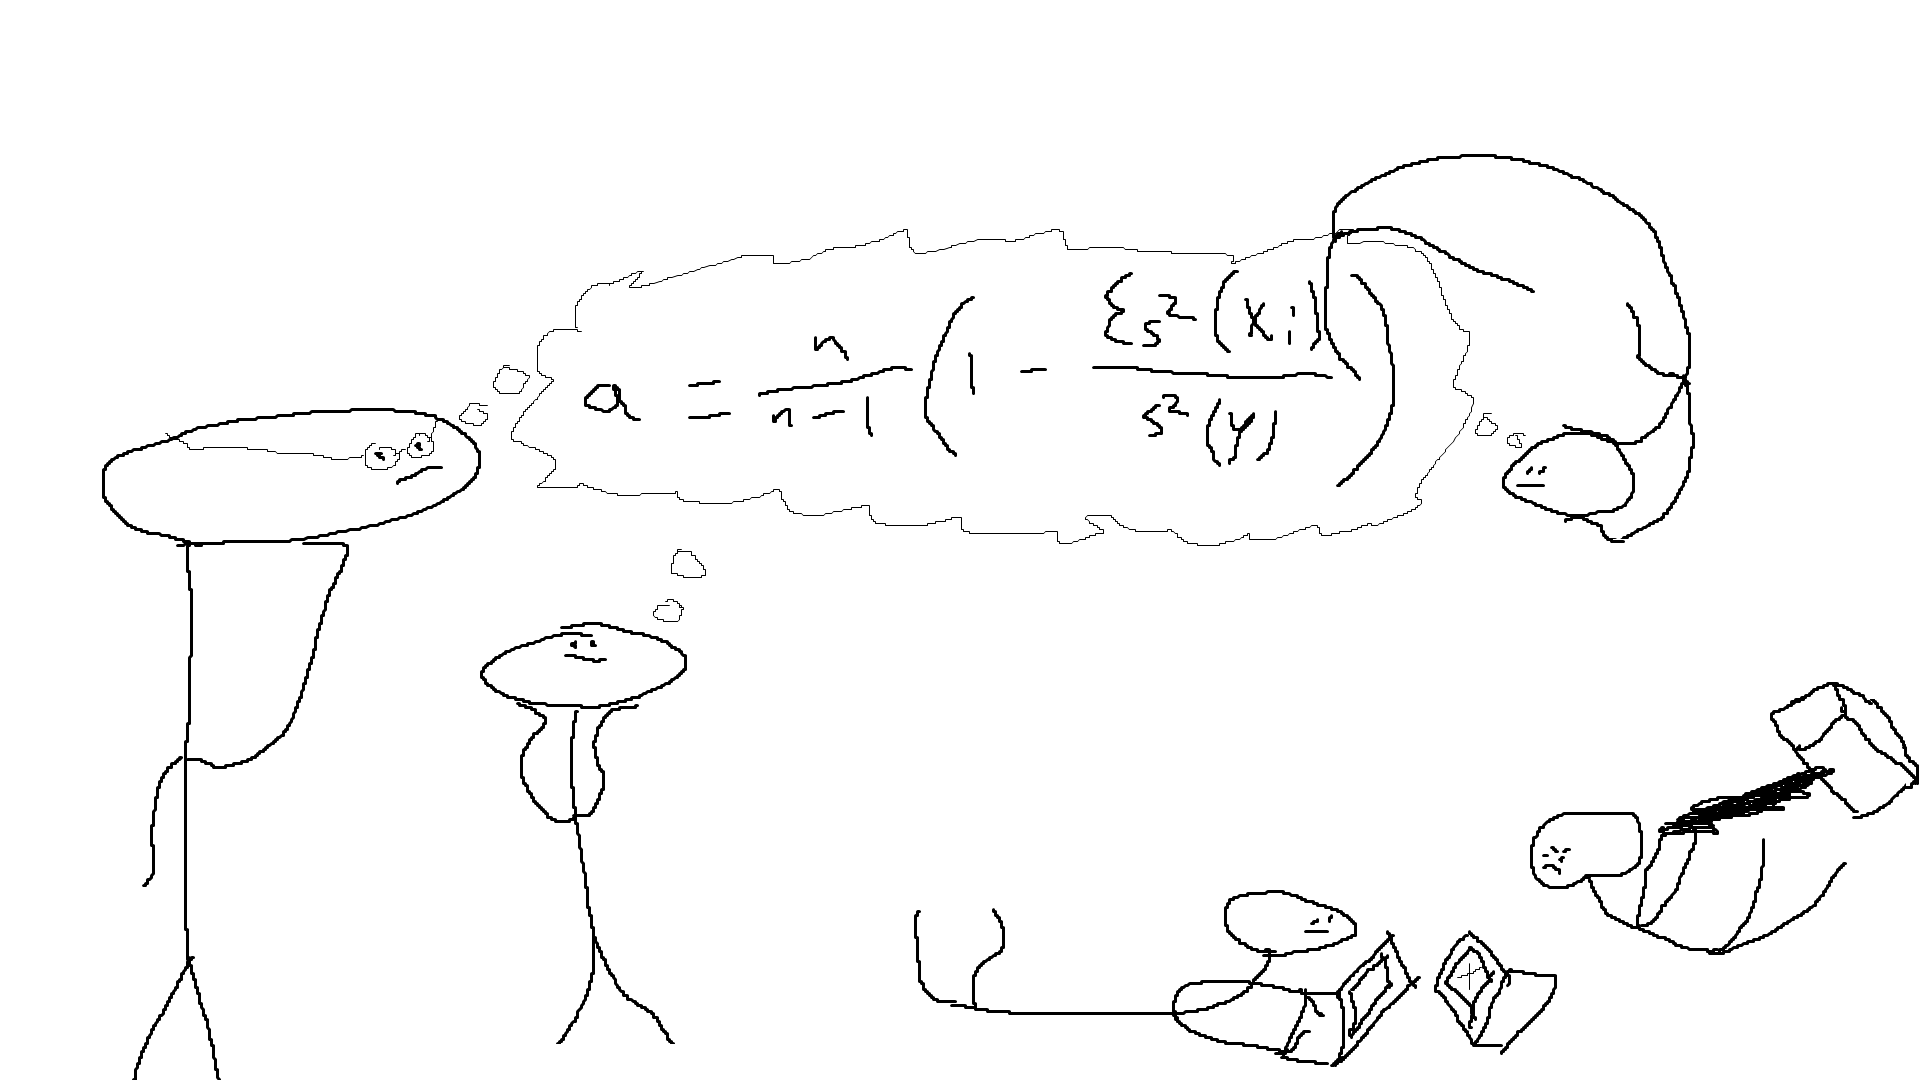 a = n/(n-1) (1 - Σs²(xi)/s²(y))